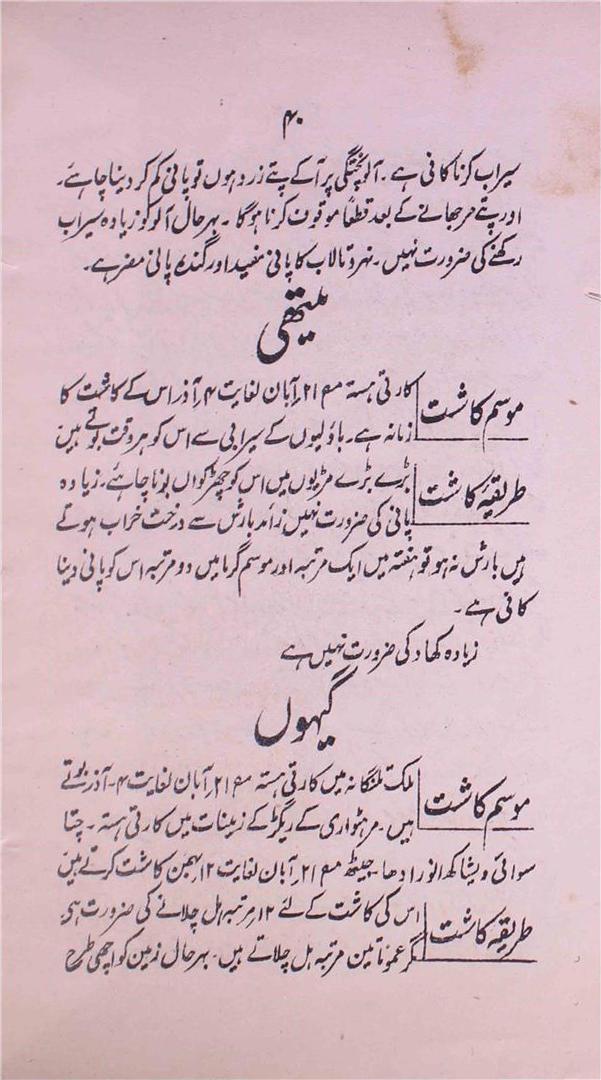 ۴۰
سیراب کرنا کافی ہے۔ آلو پختگی پر آ کے پتے زرد ہوں تو پانی کم کر دینا چاہئے۔
اور پتے مرجھانے کے بعد قطعاً موقوف کرنا ہوگا۔ بہرحال آلو کو زیادہ سیراب
رکھنے کی ضرورت نہیں۔ نہر و تالاب کا پانی مفید اور گندہ پانی مضر ہے۔
میتھی
موسم کاشت کارتی ہستہ م ۲۱؍آبان لغایت ۴؍آذر اس کے کاشت کا
زمانہ ہے۔ باؤلیوں کے سیرابی سے اس کو ہر وقت بوتے ہیں
طریقۂ کاشت بڑے بڑے مڑیوں میں اس کو چھڑکواں بونا چاہئے۔ زیادہ
پانی کی ضرورت نہیں زائد بارش سے درخت خراب ہوتے
ہیں بارش نہ ہو تو ہفتہ میں ایک مرتبہ اور موسم گرما میں دو مرتبہ اس کو پانی دینا
کافی ہے۔
زیادہ کھاد کی ضرورت نہیں ہے
گیہوں
موسم کاشت ملک تلنگانہ میں کارتی ہستہ م ۲۱؍آبان لغایت ۴۔آذر بوتے
ہیں۔ مرہٹواری کے ریگڑ کے زمینات میں کارتی ہستہ۔ چتا
سوائی ویشاکھ انورادھا۔ جیٹھ م ۲۱؍آبان لغایت ۱۲؍بہمن کاشت کرتے ہیں
طریقہ کاشت اس کی کاشت کے لئے ۱۲؍مرتبہ ہل چلانے کی ضرورت ہی
گر عموماً تین مرتبہ ہل چلاتے ہیں۔ بہرحال زمین کو اچھی طرح